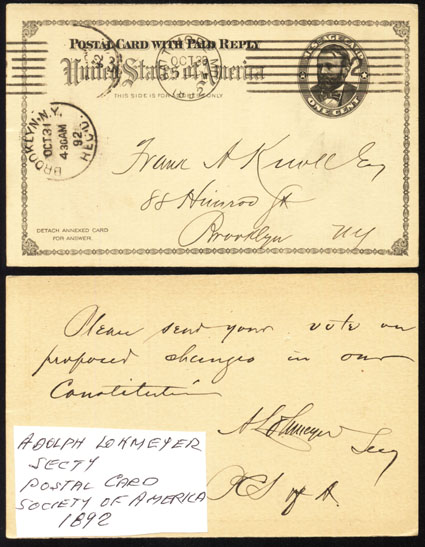 POSTAL CARD WITH PAID REPLY
United States of America
THIS SIDE IS FOR ADDRESS ONLY
POSTAGE
ONE CENT
OCT 30
BROOKLYN, N.Y.
OCT 31
4-30AM
92
REC'D
Frank A Knoll Esq
88 Himrod St
Brooklyn NY
DETACH ANNEXED CARD
FOR ANSWER.
Please send your vote on
proposed changes in our
Constitution
A Lohmeyer
Secy
PCS of A.
ADOLPH LOHMEYER
SECTY
POSTAL CARD
SOCIETY OF AMERICA
1892